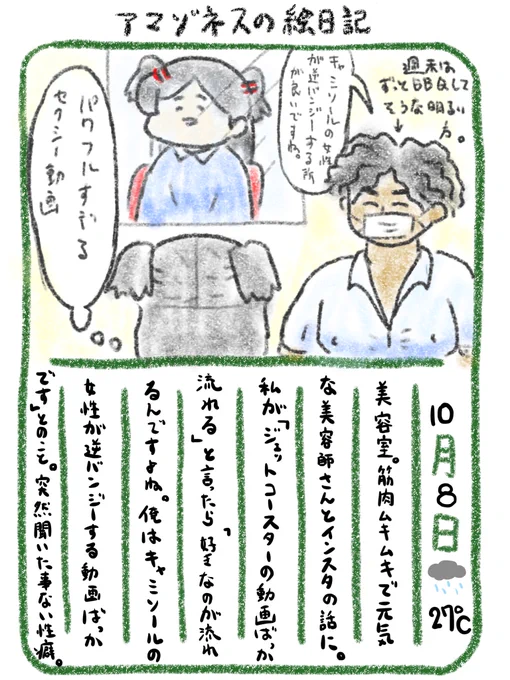 アマゾネスの絵日記
週末は
ずっとBBQして
そうな明るい
方。
キャミソールの女性
が逆バンジーする所
が良いですね。
パワフルすぎる
セクシー動画
10月8日
27℃
美容室。筋肉ムキムキで元気
な美容師さんとインスタの話に。
私が「ジェットコースターの動画ばっか
流れる」と言ったら「好きなのが流れ
るんですよね。俺はキャミソールの
女性が逆バンジーする動画ばっか
です」とのこと。突然聞いた事ない性癖。